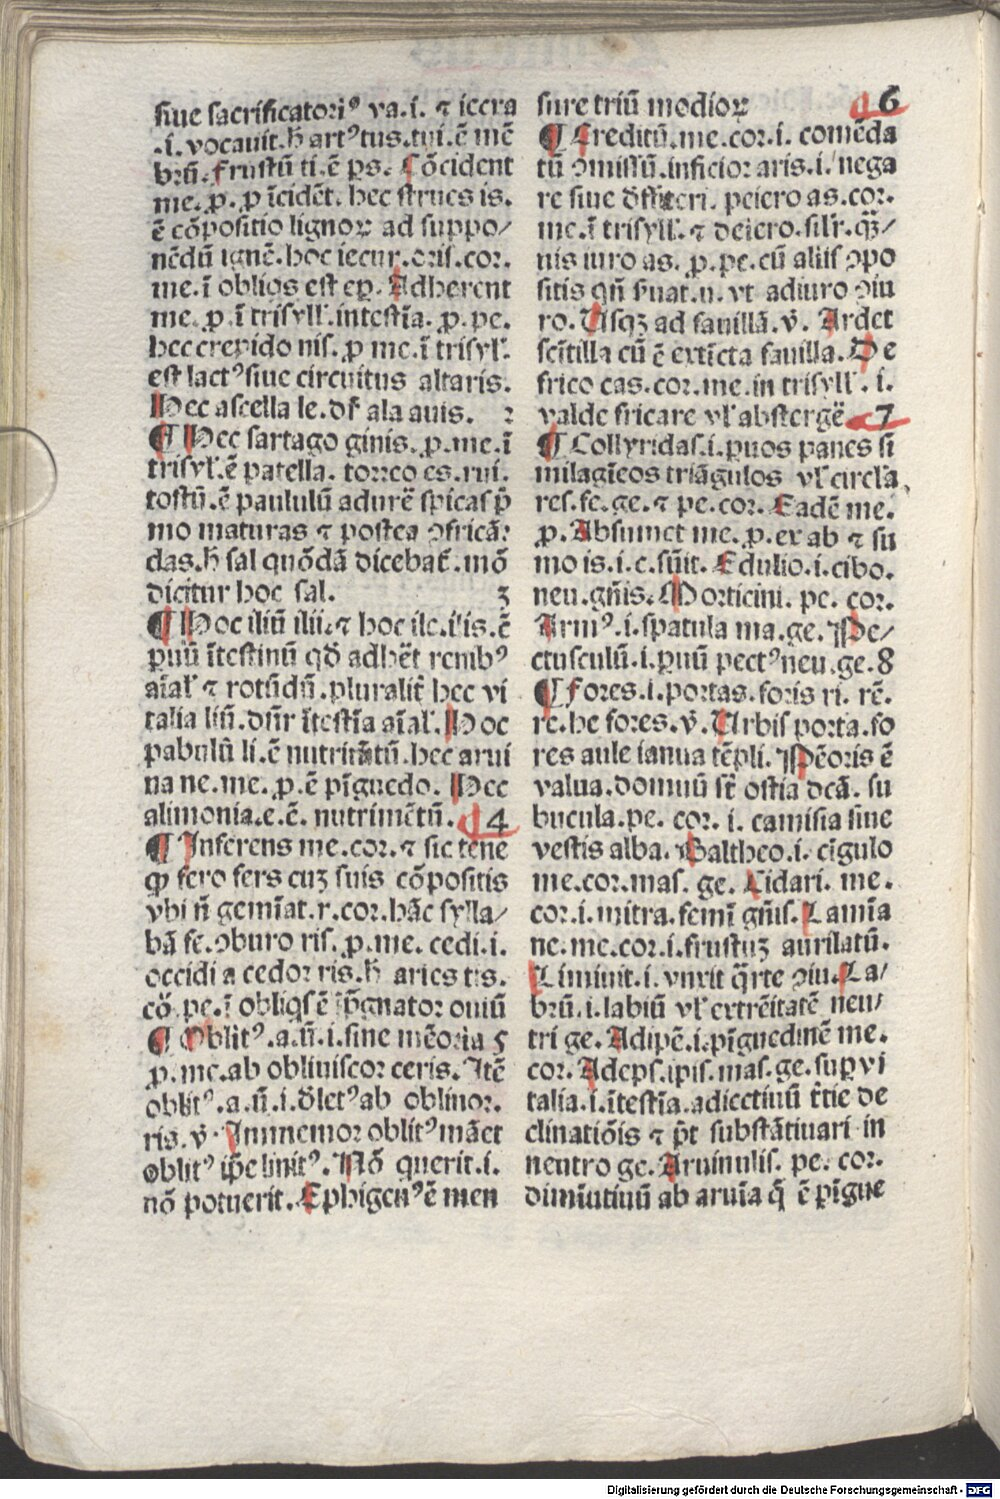 siue sacrificatoriꝰ va.i. ⁊ iecra
.i. vocauit. h̄ artꝰ tus. tui. ē mē
brū. Frustū ti. ē ps. Cōcident
me. p. p īcidēt. hec strues is.
ē cōpositio lignoꝝ ad suppo/
nēdū ignē. hoc iecur. oris. cor.
me. ī oblios est ep. Adherent
me. p. ī trisyll'. intestīa. p. pe.
hec crepido nis. p me. ī trisyl'.
est lactꝰ siue circuitus altaris.
Hec ascella le. dr̄ ala auis. 2
¶ Hec sartago ginis. p. me. ī
trisyl'. ē patella. torreo es. rui.
tostū. ē paululū adurē spicas p̄
mo maturas ⁊ postea ꝯfricā:
das. h̄ sal quōdā dicebat̄. mō
dicitur hoc sal. 3
¶ Hoc iliū ilii. ⁊ hoc ile. ilis. ē
puū ītestinū qd̄ adhēt renibꝰ
aīal' ⁊ rotūdū. pluralit̄ hec vi
talia liū. dn̄r ītestīa aīal'. Hoc
pabulū li. ē nutritātū. hec arui
na ne. me. p. ē pīguedo. Hec
alimonia. e. ē. nutrimētū. 4
¶ Inferens me. cor. ⁊ sic tene
qp fero fers cuʒ suis cōpositis
vbi n̄ gemīat. r. cor. hāc sylla/
bā fe. ꝯburo ris. p. me. cedi. i.
occidi a cedor ris. h̄ aries tis.
cō. pe. ī obliqs ē īpgnator ouiū
¶ Oblitꝰ. a. ū. i. sine mēoria 5
p. me. ab obliuiscor ceris. Itē
oblitꝰ. a. ū. i. dletꝰ ab oblinor.
ris. v̄. Immemor oblitꝰ māet
oblitꝰ ip̄e linitꝰ. Nō querit. i.
nō potuerit. Ephigenꝰ ē men
sure triū modioꝝ 6
¶ Creditū. me. cor. i. comēda
tū ꝯmissū. inficior aris. i. nega
re siue diffiteri. peiero as. cor.
me. ī trisyll'. ⁊ deiero. silr. qʒ/
nis iuro as. p. pe. cū aliis ꝯpo
sitis qn̄ suat. u. vt adiuro ꝯiu
ro. Usqʒ ad fauillā. v̄. Ardet
scītilla cū ē extīcta fauilla. De
frico cas. cor. me. in trisyll'. i.
valde fricare vl' abstergē 7
¶ Collyridas. i. puos panes si
milagīeos triāgulos vl' circla
res. fe. ge. ⁊ pe. cor. Eadē me.
p. Absumet me. p. ex ab ⁊ su
mo is. i. c. sūit. Edulio. i. cibo.
neu. gn̄is. Morticini. pe. cor.
Armꝰ. i. spatula ma. ge. Pe/
ctusculū. i. puū pectꝰ neu. ge. 8
¶ Fores. i. portas. foris ri. rē.
re. he fores. v̄. Urbis porta. fo
res aule ianua tēpli. Pēoris ē
valua. domuū st̄ ostia dcā. su
bucula. pe. cor. i. camisia siue
vestis alba. Baltheo. i. cīgulo
me. cor. mas. ge. Cidari. me.
cor. i. mitra. femī gn̄is. Lamīa
ne. me. cor. i. frustuʒ aurilatū.
Liminit. i. vnxit q̄rte ꝯiu. La/
brū. i. labiū vl' extrēitatē neu/
tri ge. Adipē. i. pīguedinē me.
cor. Adeps. ipis. mas. ge. sup vi
talia. i. ītestīa. adiectiuū t̄tie de
clinatiōis ⁊ p̄t substātiuari in
neutro ge. Aruinulis. pe. cor.
dimīutiuū ab aruīa q̄ ē pīgue
Digitalisierung gefördert durch die Deutsche Forschungsgemeinschaft - DFG